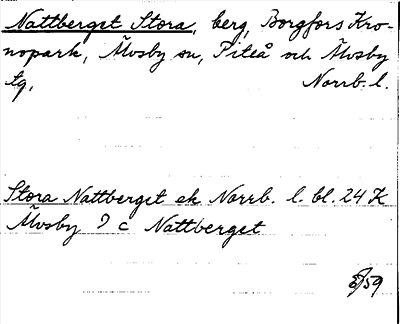 Nattberget Stora, berg, Borgfors Kro-
nopark, Älvsby sn, Piteå och Älvsby
tg, Norrb. l.
Stora Nattberget ek Norrb. l. bl. 24 K
Älvsby 9 c Nattberget
/59